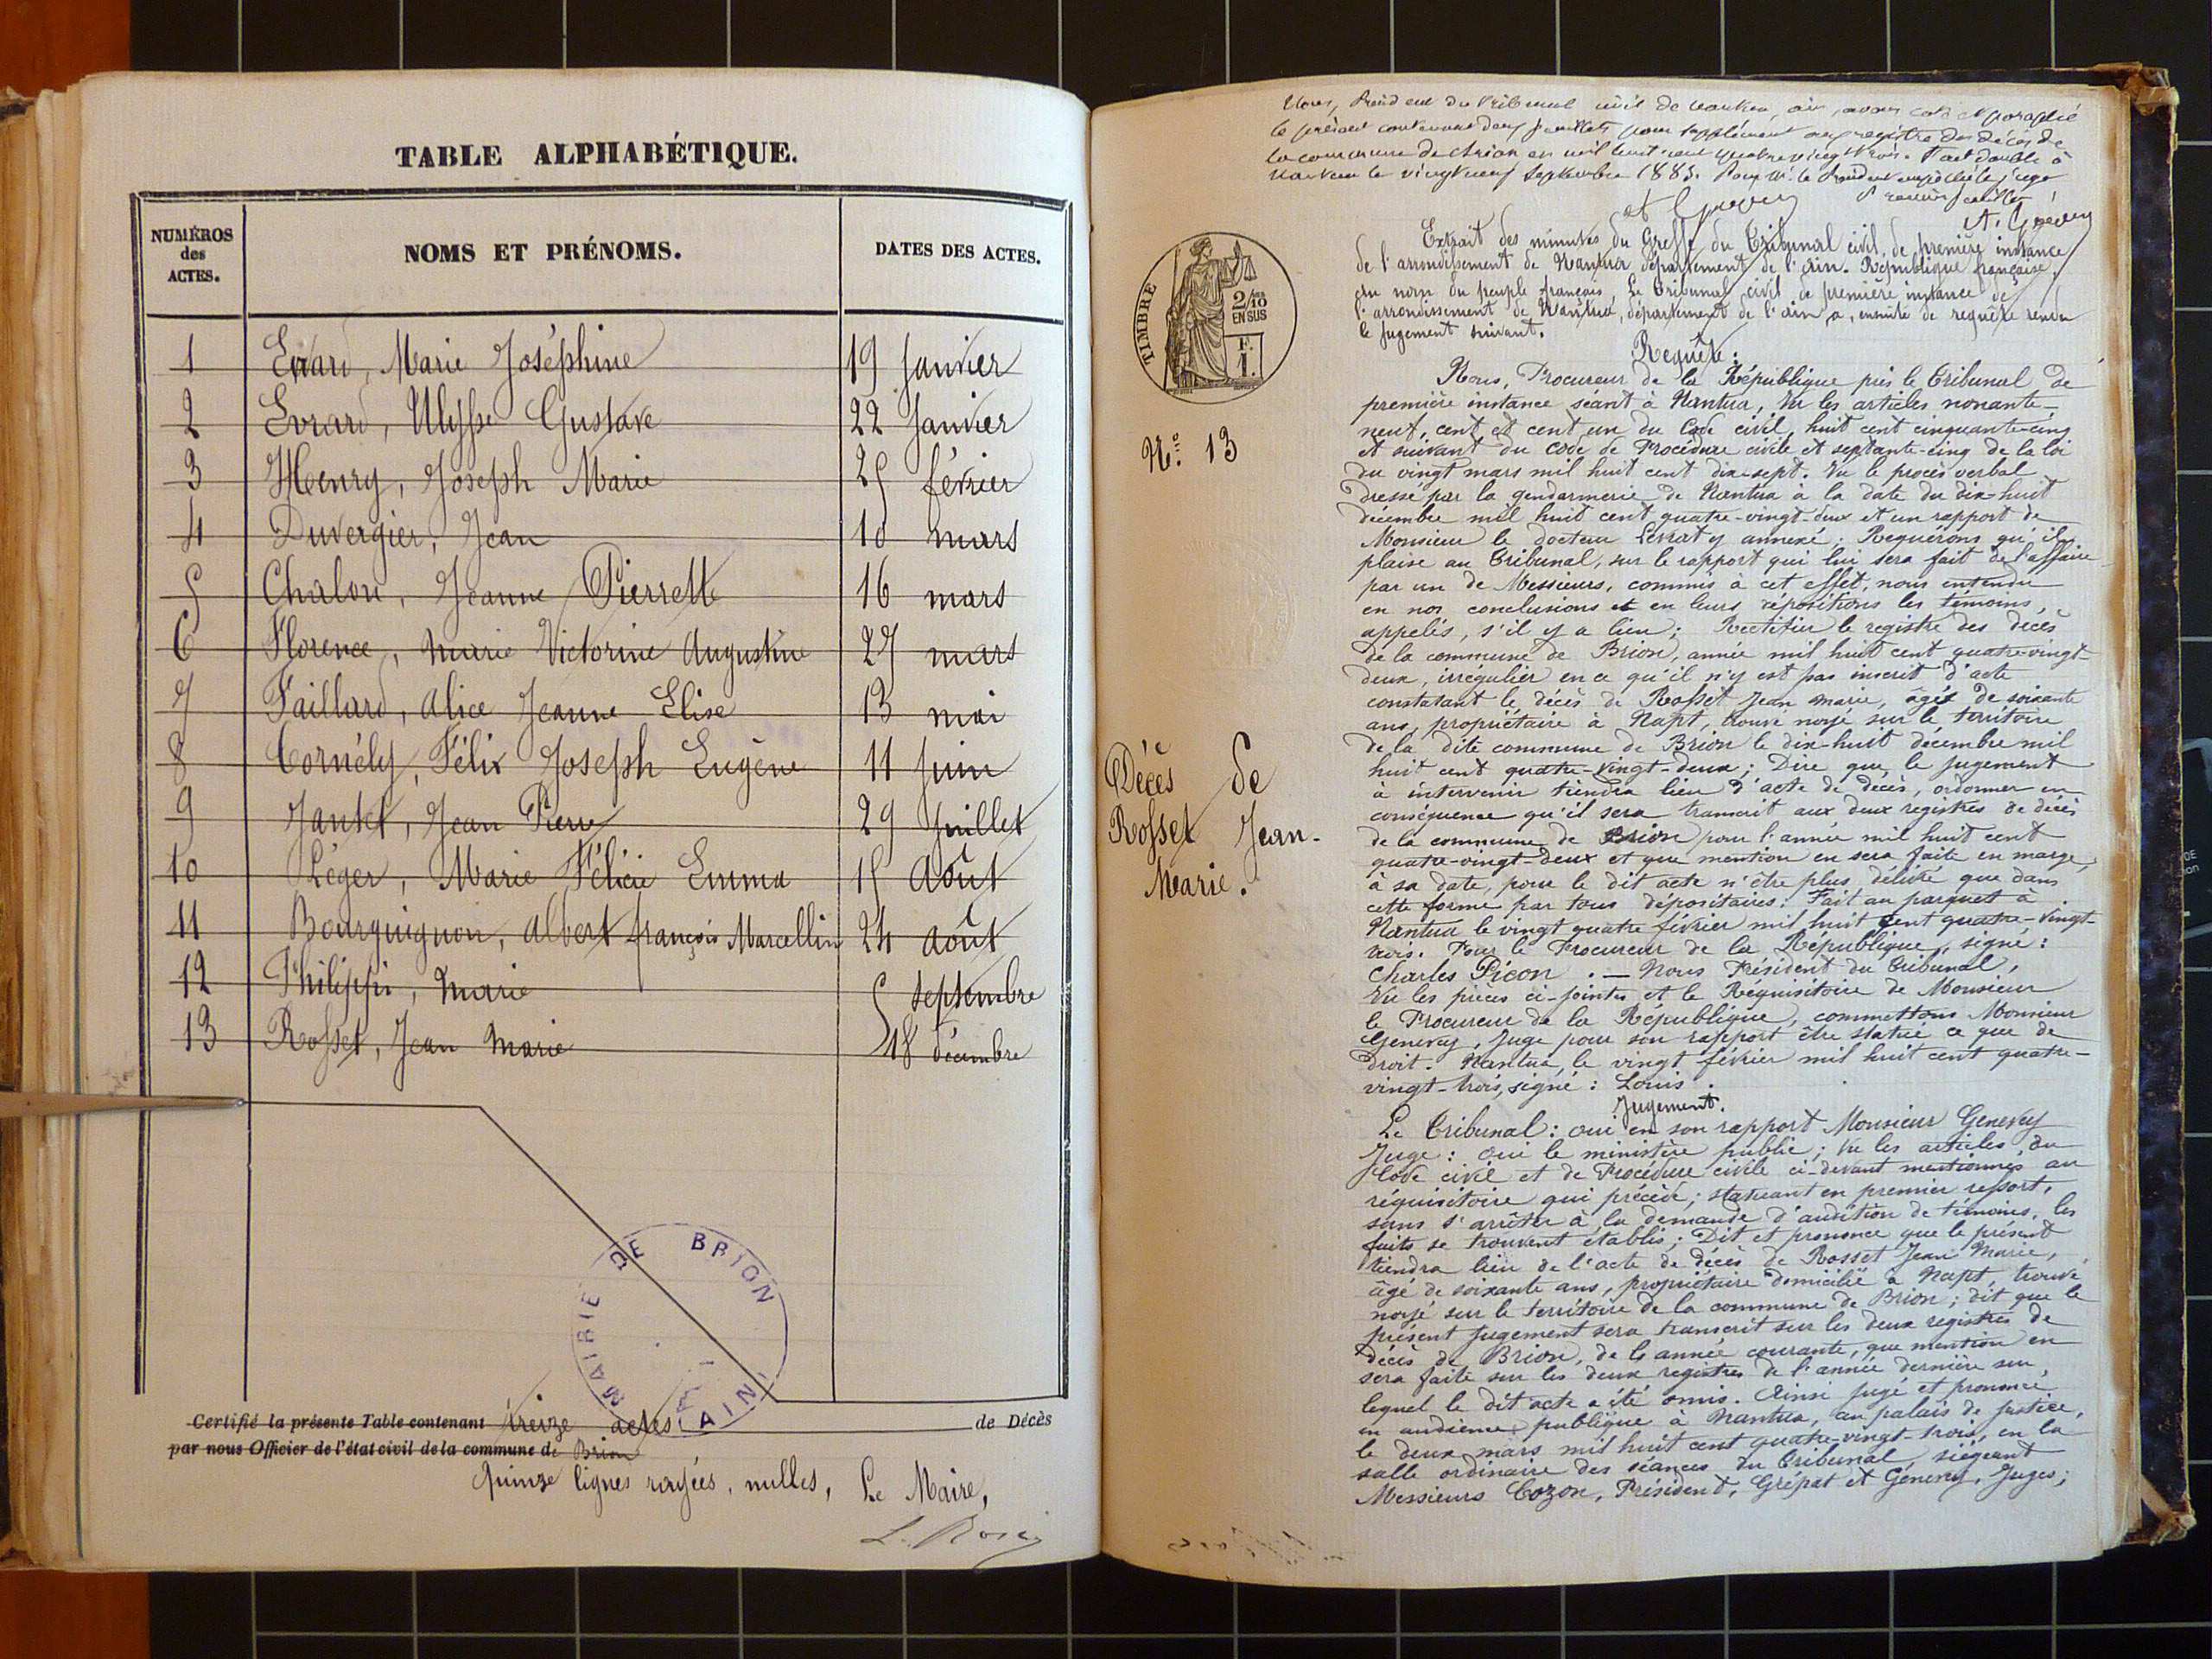 TABLE ALPHABÉTIQUE.
NUMÉROS des ACTES.
NOMS ET PRÉNOMS.
DATES DES ACTES.
1 Evrard, Marie Joséphine 19 Janvier
2 Evrard, Ulysse Gustave 22 Janvier
3 Henry, Joseph Marie 25 février
4 Duvergier, Jean 10 mars
5 Chalon, Jeanne Pierrette 16 mars
6 Florence, Marie Victorine Augustine 27 mars
7 Faillard, Alice Jeanne Elise 13 mai
8 Cornély, Félix Joseph Eugène 11 Juin
9 Jantet, Jean Pierre 29 Juillet
10 Léger, Marie Félicie Emma 15 Août
11 Bourguignon, Albert françois Marcellin 24 Août
12 Philippi, Marie 5 Septembre
13 Rosset, Jean Marie 18 décembre
MAIRIE DE BRION
(AIN)
Certifié la présente Table contenant treize actes de Décès
par nous Officier de l'état civil de la commune de Brion
Quinze lignes rayées, nulles, Le Maire,
Nous, Président du Tribunal civil de Nantua, ain, avons coté et paraphé
le présent contenant deux feuillets pour supplément aux registre des décès de
la commune de Brion en mil huit cent quatre vingt trois. Fait double à
Nantua le vingt neuf Septembre 1883. Pour Mr le Président empêché le juge
Premier feuillet
Extrait des minutes du Greffe du Tribunal civil de première instance
de l'arrondissement de Nantua département de l'Ain. République française,
au nom du peuple français, Le Tribunal civil de première instance de
l'arrondissement de Nantua, département de l'ain, a, ensuite de requête rendu
le jugement suivant.
TIMBRE
2/10 EN SUS
F. 1.
Requête:
Nous, Procureur de la République près le Tribunal de
première instance séant à Nantua, Vu les articles nonante-
neuf, cent et cent un du Code civil, huit cent cinquante-cinq
et suivant du code de Procédure civile et septante-cinq de la loi
du vingt mars mil huit cent dix-sept. Vu le procès verbal
dressé par la gendarmerie de Nantua à la date du dix-huit
décembre mil huit cent quatre-vingt-deux et un rapport de
Monsieur le docteur Levrat y annexé: Requérons qu'il
plaise au Tribunal, sur le rapport qui lui sera fait de l'affaire
par un de Messieurs, commis à cet effet, nous entendu
en nos conclusions et en leurs dépositions les témoins,
appelés, s'il y a lieu; Rectifier le registre des décès
de la commune de Brion, année mil huit cent quatre-vingt-
deux, irrégulier en ce qu'il n'y est pas inscrit d'acte
constatant le décès de Rosset Jean Marie, âgé de soixante
ans, propriétaire à Napt, trouvé noyé sur le territoire
de la dite commune de Brion le dix-huit décembre mil
huit cent quatre-vingt-deux; Dire que le jugement
à intervenir tiendra lieu d'acte de décès, ordonner en
conséquence qu'il sera transcrit aux deux registres de décès
de la commune de Brion pour l'année mil huit cent
quatre-vingt-deux et que mention en sera faite en marge,
à sa date, pour le dit acte n'être plus délivré que dans
cette forme par tous dépositaires. Fait au parquet à
Nantua le vingt quatre février mil huit cent quatre-vingt
trois. Pour le Procureur de la République, signé:
Charles Picon. — Nous Président du Tribunal,
Vu les pièces ci-jointes et le Réquisitoire de Monsieur
le Procureur de la République, commettons Monsieur
Genevey, Juge pour son rapport être statué ce que de
droit. Nantua, le vingt février mil huit cent quatre-
vingt-trois, signé: Louis.
N.° 13
Décès de
Rosset Jean-
Marie.
Jugement.
Le Tribunal: oui en son rapport Monsieur Genevey
Juge: oui le ministère public; Vu les articles du
Code civil et de Procédure civile ci-devant mentionnés au
réquisitoire qui précède; statuant en premier ressort,
sans s'arrêter à la demande d'audition de témoins, les
faits se trouvent établis; Dit et prononce que le présent
tiendra lieu de l'acte de décès de Rosset Jean Marie,
âgé de soixante ans, propriétaire domicilié à Napt, trouvé
noyé sur le territoire de la commune de Brion; dit que le
présent Jugement sera transcrit sur les deux registres de
décès de Brion, de l'année courante, que mention en
sera faite sur les deux registres de l'année dernière sur
lequel le dit acte a été omis. Ainsi jugé et prononcé
en audience publique à Nantua, au palais de justice,
le deux mars mil huit cent quatre-vingt-trois, en la
salle ordinaire des séances du Tribunal, siégeant
Messieurs Cozon, Président, Grépat et Genevey, Juges;